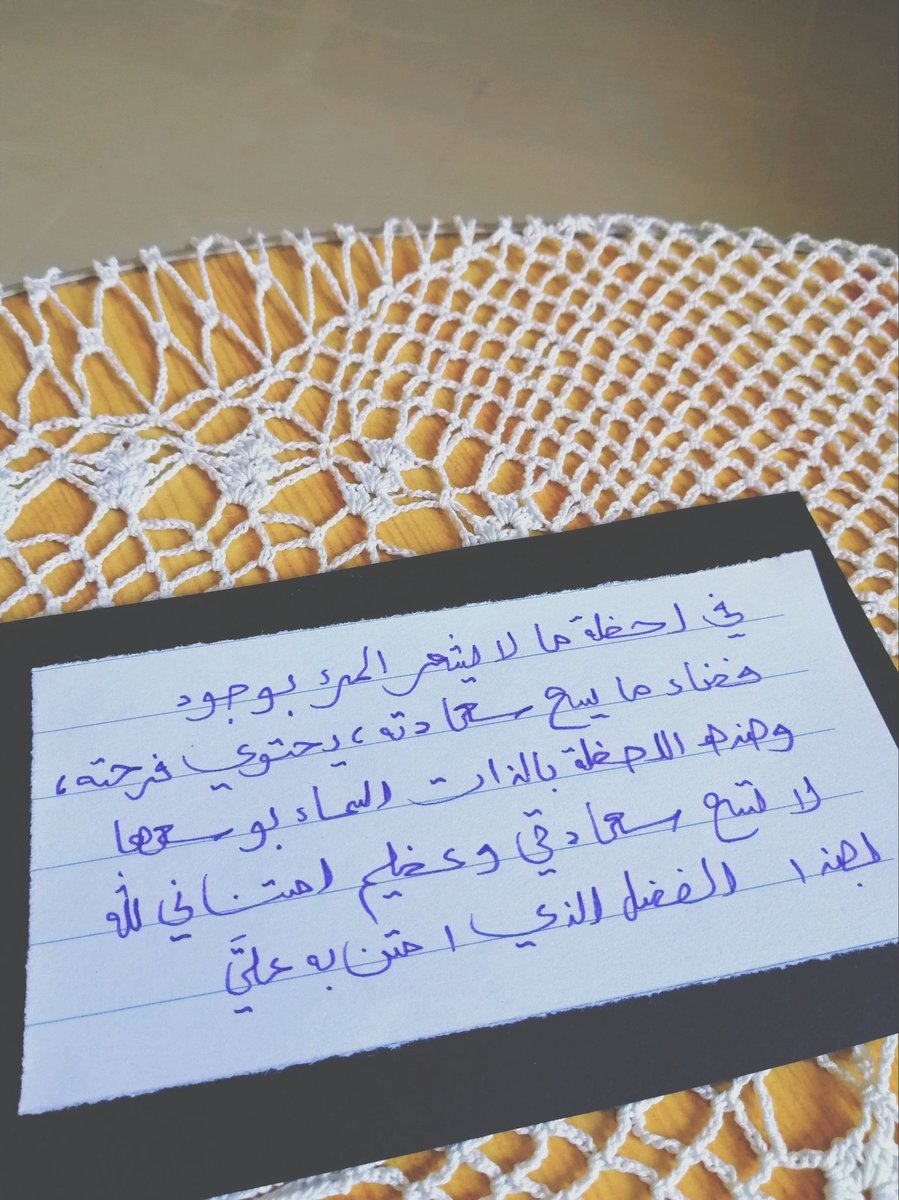 في لحظة ما لا يشعر المرء بوجود
فضاء ما يسع سعادته، يحتوي فرحته،
وهذه اللحظة بالذات السماء بوسعها
لا تسع سعادتي وعظيم امتناني لله
لهذا الفضل الذي امتن به عليَّ